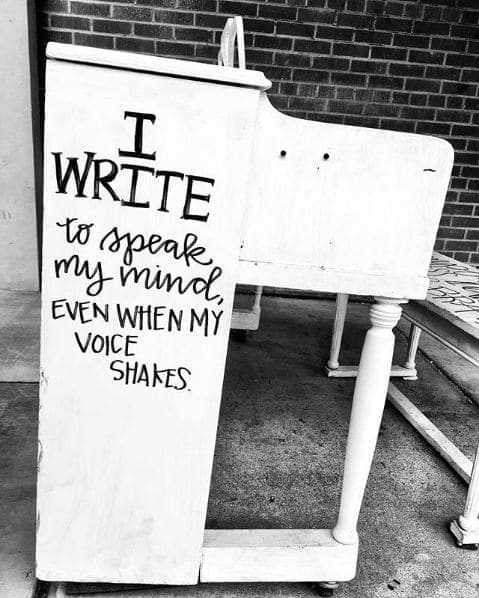 I
WRITE
to speak
my mind,
EVEN WHEN MY
VOICE
SHAKES.